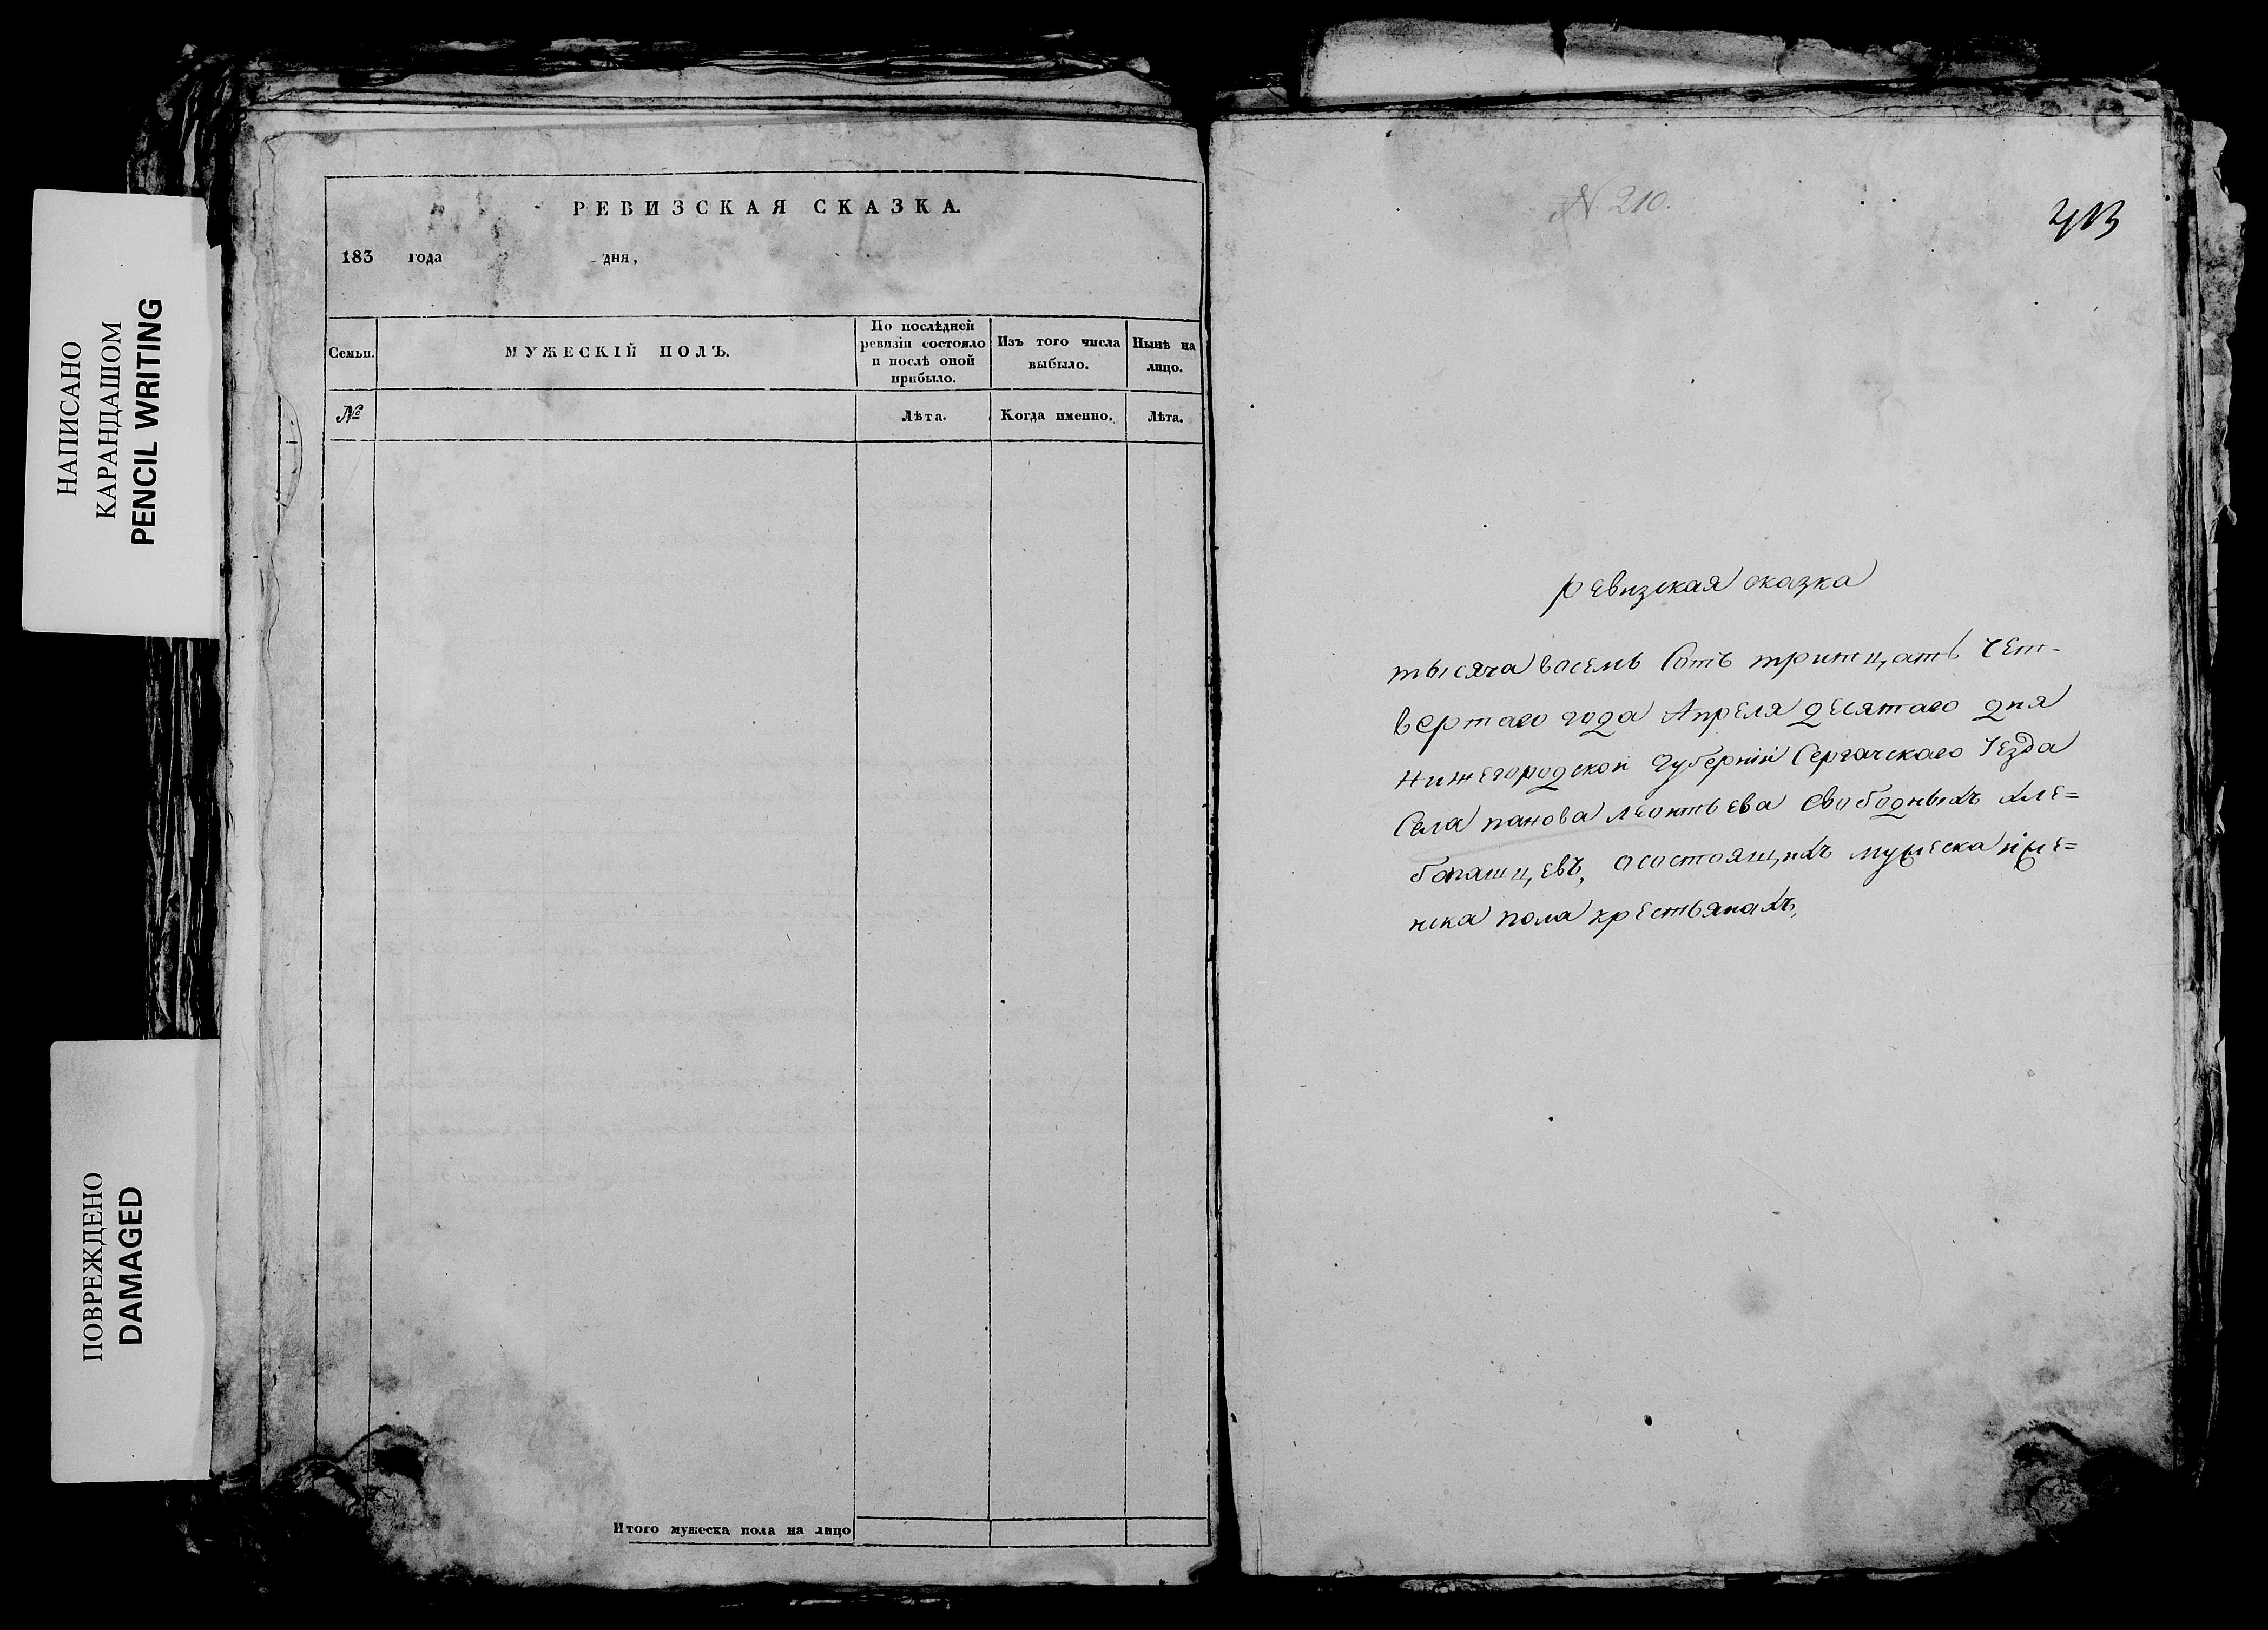 НАПИСАНО
КАРАНДАШОМ
PENCIL WRITING
ПОВРЕЖДЕНО
DAMAGED
РЕВИЗСКАЯ СКАЗКА.
183 года дня,
Семьи.
МУЖЕСКІЙ ПОЛЪ.
По послѣдней
ревизіи состояло
и послѣ оной
прибыло.
Изъ того числа
выбыло.
Нынѣ на
лицо.
№
Лѣта.
Когда именно.
Лѣта.
Итого мужеска пола на лицо
№ 210.
413
ревизская сказка
тысяча восемь Сотъ тритцать чет-
вертаго года Апреля десятаго дня
Нижегородской Губерніи Сергачскаго Уезда
Села панова леонтьева Свободныхъ хле=
бопашцевъ, осостоящихъ мужеска иже=
нска пола крестьянахъ,